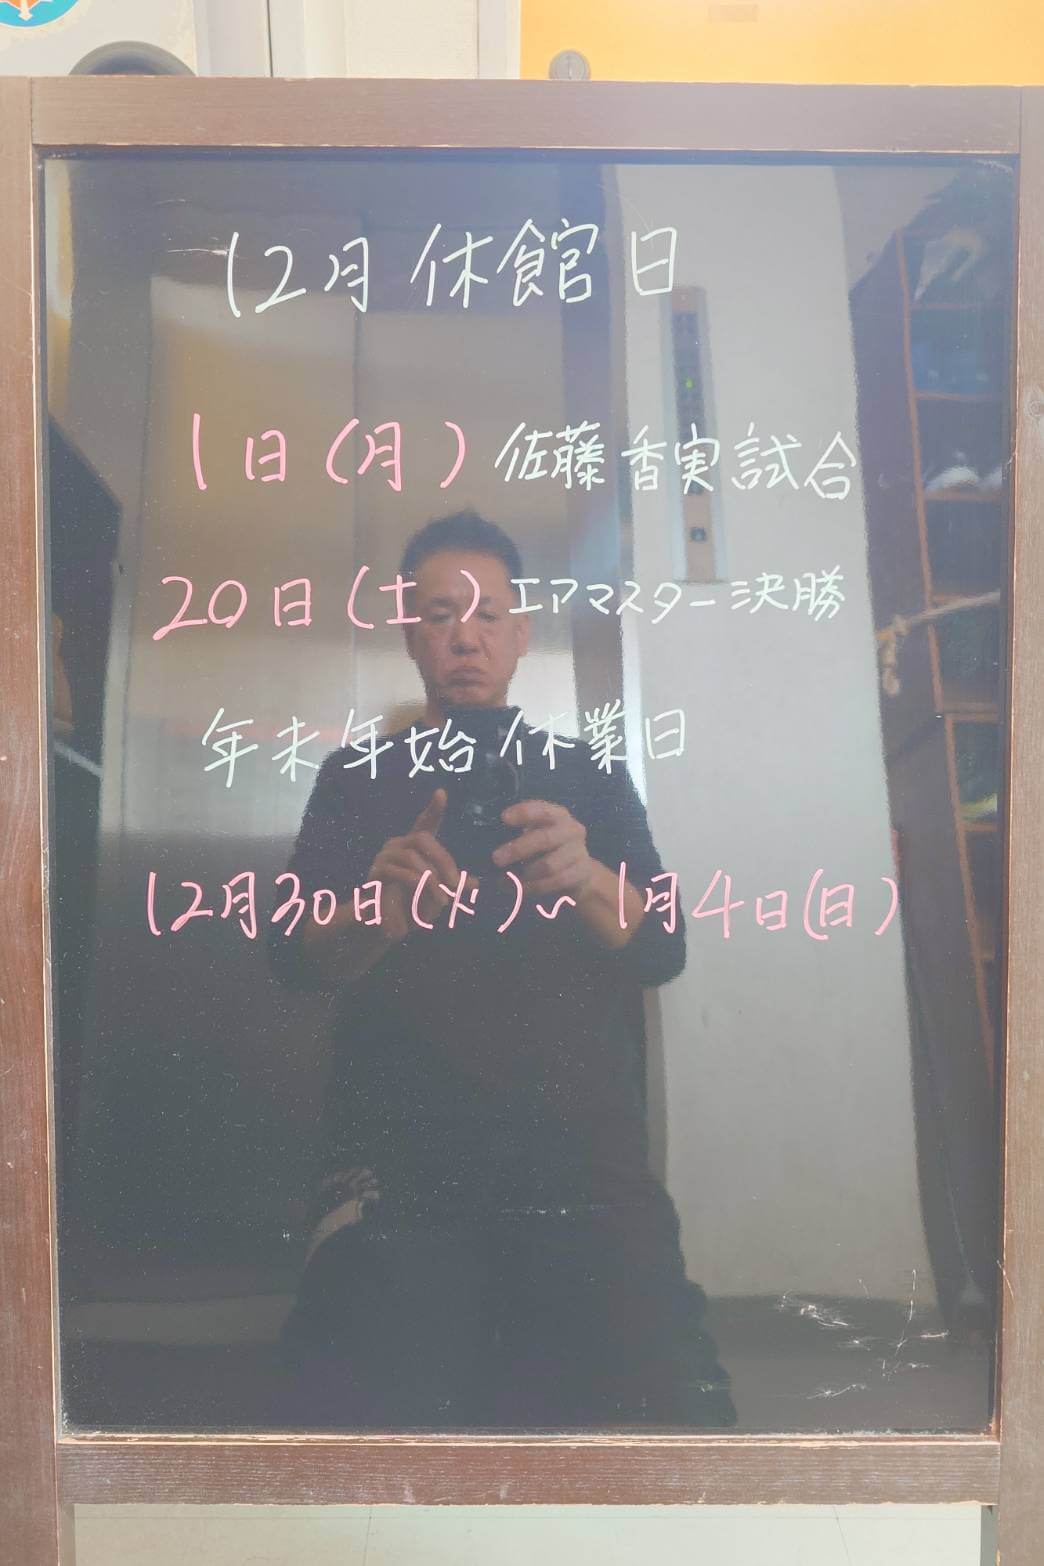 12月 休館日
1日(月) 佐藤 香実 試合
20日(土) エアマスター決勝
年末年始 休業日
12月30日(火)~1月4日(日)